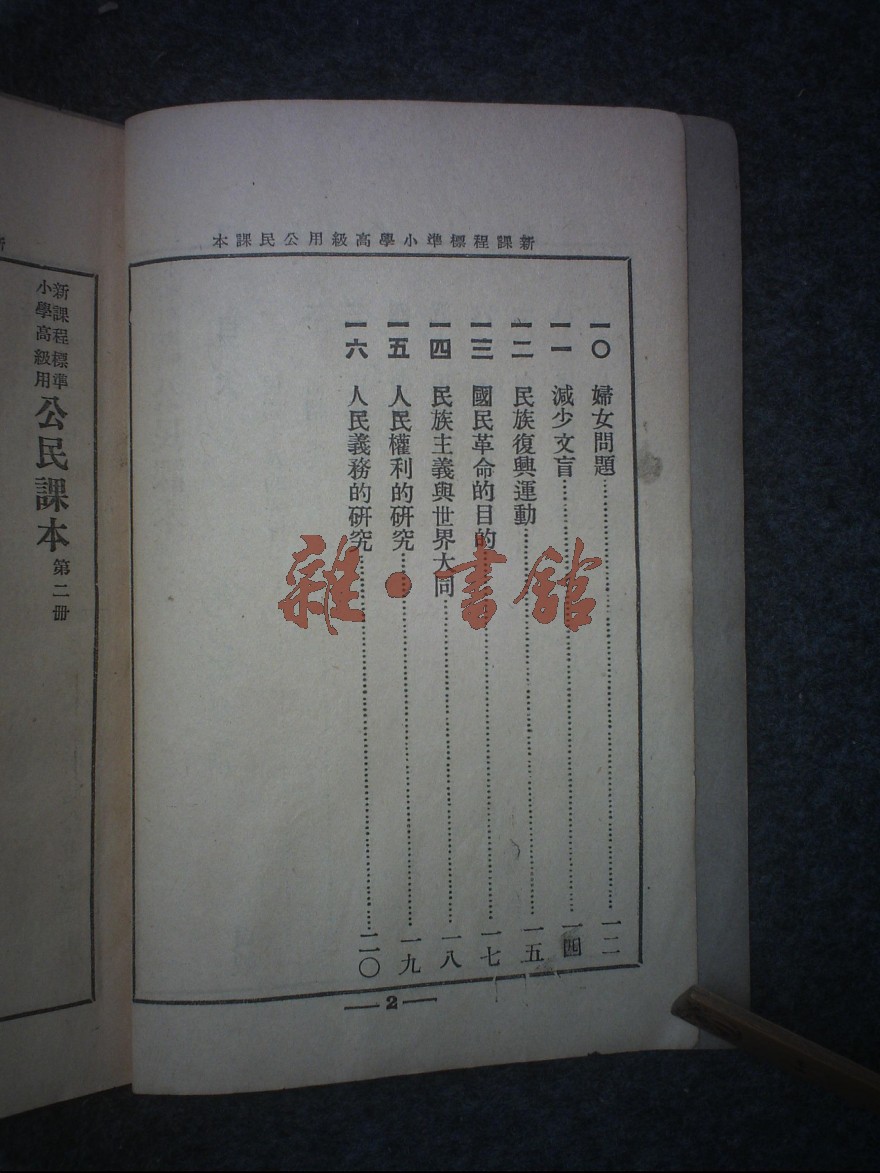 新課程標準小學高級用公民課本
一〇 婦女問題……一二
一一 減少文盲……一四
一二 民族復興運動……一五
一三 國民革命的目的……一七
一四 民族主義與世界大同……一八
一五 人民權利的研究……一九
一六 人民義務的研究……二〇
2
雜·書館
新課程標準
小學高級用
公民課本 第二冊